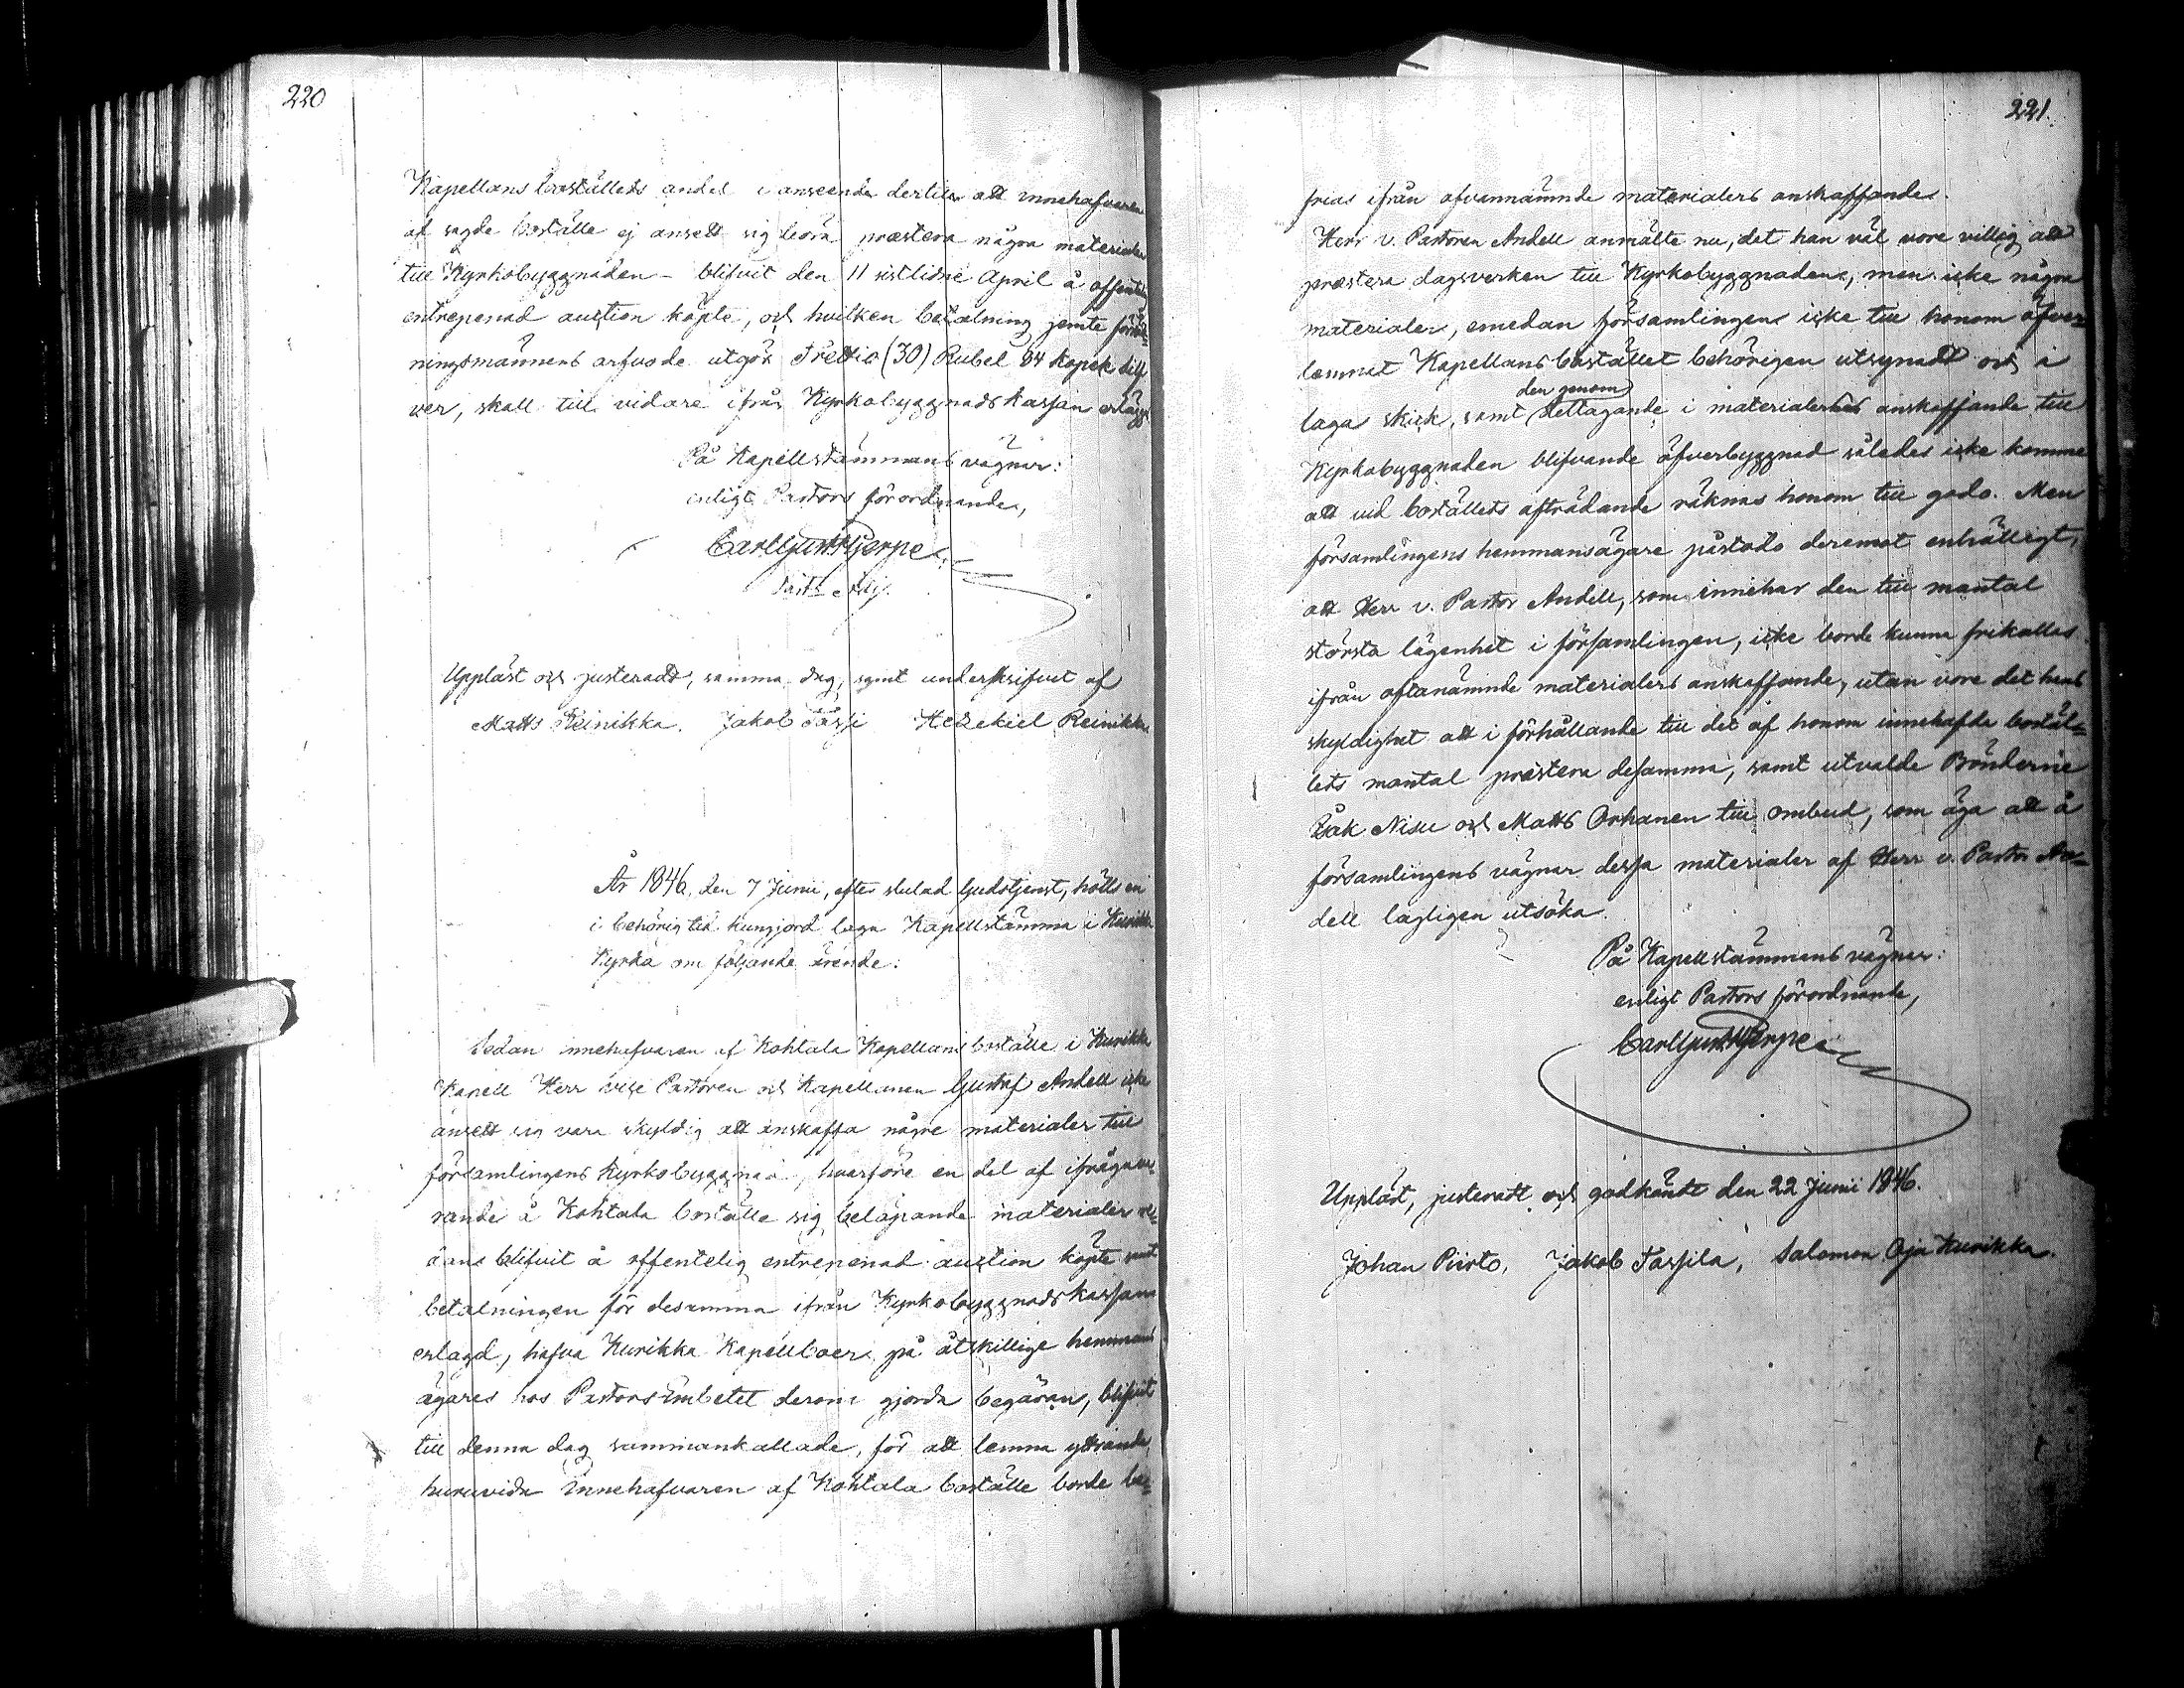 220
Kapellans boställets andel i anseende dertill att innehafvaren
af sagde boställe ej ansett sig böra præstera några materialer
till Kyrkobyggnaden - blifvit den 11 sistlidne April å offentlig
entrepenad auction köpte, och hvilken betalning jemte förrätt-
ningsmännens arfvode utgör Trettio (30) Rubel 84 Kopek silf
ver, skall till vidare ifrån Kyrkobyggnads kassan erläggas
På Kapellstämmans vägnar:
enligt Pastors förordnande,
Carl Gust. Hjerpe
Past. Adj.
Uppläst och justeradt, samma dag, samt underskrifvet af
Matts Reinikka. Jakob Tassi Hezekiel Reinikka
År 1846, den 7 Junii, efter slutad Gudstjenst, hölls en
i behörig tid kungjord laga Kapellstämma i Kurikka
Kyrka om följande ärende:
Sedan innehafvaren af Kohtala Kapellans boställe i Kurikka
Kapell Herr vice Pastoren och Kapellanen Gustaf Andell icke
ansett sig vara skyldig att anskaffa några materialer till
församlingens Kyrkobyggnad, hvarföre en del af ifrågava-
rande å Kohtala boställe sig belöpande materialer
blifvit å offentelig entrepenad auction köpte samt
betalningen för desamma ifrån Kyrkobyggnads kassan
erlagd, hafva Kurikka Kapellboer på åtskillige hemmans
ägares hos Pastors Embetet derom gjorda begäran, blifvit
till denna dag sammankallade, för att lemna yttrande
huruvida innehafvaren af Kohtala boställe borde be-
221.
frias ifrån ofvannämnde materialers anskaffande.
Herr v. Pastoren Andell anmälte nu, det han väl vore villig att
præstera dagsverken till Kyrkobyggnaden, men icke några
materialer, emedan församlingen icke till honom öfver-
lemnat Kapellans bostället behörigen utsynadt och i
den genom
laga skick, samt deltagande i materialernes anskaffande till
Kyrkobyggnaden blifvande öfverbyggnad således icke komme
att vid boställets afträdande räknas honom till godo. Men
församlingens hemmansägare påstodo deremot enhälligt,
att Herr v. Pastor Andell, som innehar den till mantal
största lägenhet i församlingen, icke borde kunna frikallas
ifrån oftanämnde materialers anskaffande, utan vore det hans
skyldighet att i förhållande till det af honom innehafde bostäl-
lets mantal præstera desamma, samt utvalde Bönderne
Isak Nisu och Matts Orhanen till ombud, som äga att å
församlingens vägnar dessa materialer af Herr v. Pastor An-
dell lagligen utsöka.
På Kapellstämmans vägnar:
enligt Pastors förordnande,
Carl Gust. Hjerpe
Uppläst, justeradt och godkändt den 22 Junii 1846.
Johan Piirto, Jakob Tassila, Salomon Oja Kurikka.